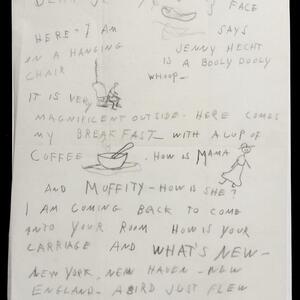 FACE
HERE I AM
SAYS
IN A HANGING
JENNY HECHT
CHAIR
IS A BOOLY DOOLY
WHOOP—
IT IS VERY
MAGNIFICENT OUTSIDE. HERE COMES
MY BREAKFAST WITH A CUP OF
COFFEE . HOW IS MAMA
AND MUFFITY — HOW IS SHE?
I AM COMING BACK TO COME
INTO YOUR ROOM HOW IS YOUR
CARRIAGE AND WHAT'S NEW —
NEW YORK, NEW HAVEN — NEW
ENGLAND — A BIRD JUST FLEW